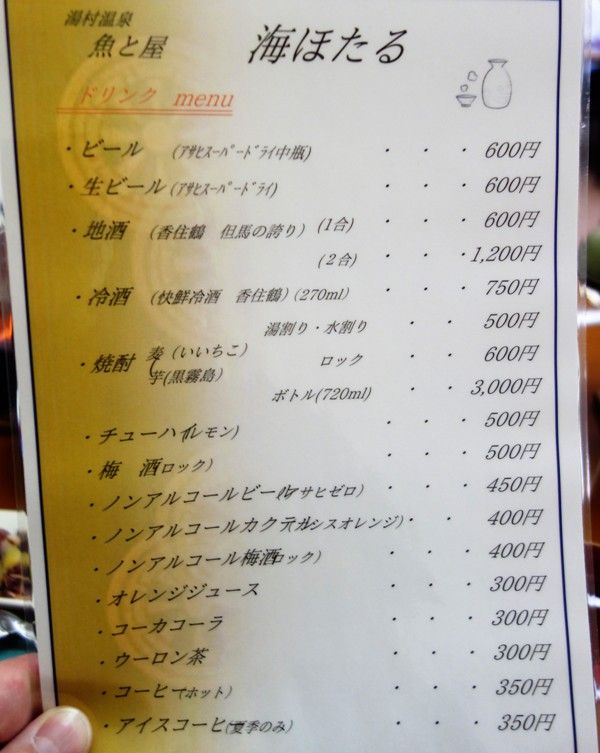 湯村温泉
魚と屋 海ほたる
ドリンク menu
・ビール (ｱｻﾋｽｰﾊﾟｰﾄﾞﾗｲ中瓶) ・ ・ ・ 600円
・生ビール(ｱｻﾋｽｰﾊﾟｰﾄﾞﾗｲ) ・ ・ ・ 600円
・地酒 (香住鶴 但馬の誇り) (1合) ・ ・ ・ 600円
(2合) ・ ・ ・ 1,200円
・冷酒 (快鮮冷酒 香住鶴)(270ml) ・ ・ ・ 750円
湯割り・水割り ・ ・ 500円
・焼酎 麦(いいちこ) ロック ・ ・ 600円
芋(黒霧島)
ボトル(720ml) ・ ・ 3,000円
・チューハイ(レモン) ・ ・ ・ 500円
・梅 酒(ロック) ・ ・ ・ 500円
・ノンアルコールビール(アサヒゼロ) ・ ・ ・ 450円
・ノンアルコールカクテル(カシスオレンジ)・ ・ ・ 400円
・ノンアルコール梅酒(ロック) ・ ・ ・ 400円
・オレンジジュース ・ ・ ・ 300円
・コーカコーラ ・ ・ ・ 300円
・ウーロン茶 ・ ・ ・ 300円
・コーヒー(ホット) ・ ・ ・ 350円
・アイスコーヒー(夏季のみ) ・ ・ ・ 350円